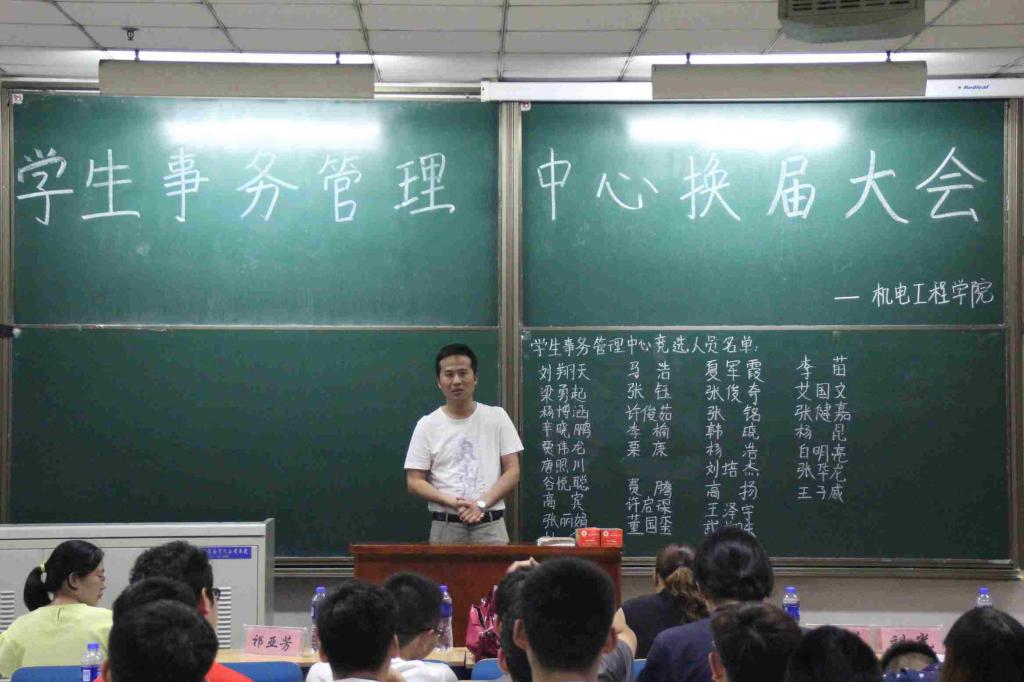 学生事务管理 中心换届大会
— 机电工程学院
学生事务管理中心竞选人员名单:
刘翔天 马浩 夏军霞 李苗
梁勇起 张钰 张俊奇 艾国文
杨博涵 许俊茹 张铭 张健嘉
辛晓鹏 李榆 韩晓 杨昆
贾伟龙 栗康 杨浩 白明亮
唐熙川 刘培杰 张华龙
谷悦聪 贾腾 高扬 王子威
高宾 许启深 王泽宇
张丽娟 董国玺
祁亚芳
Redleaf